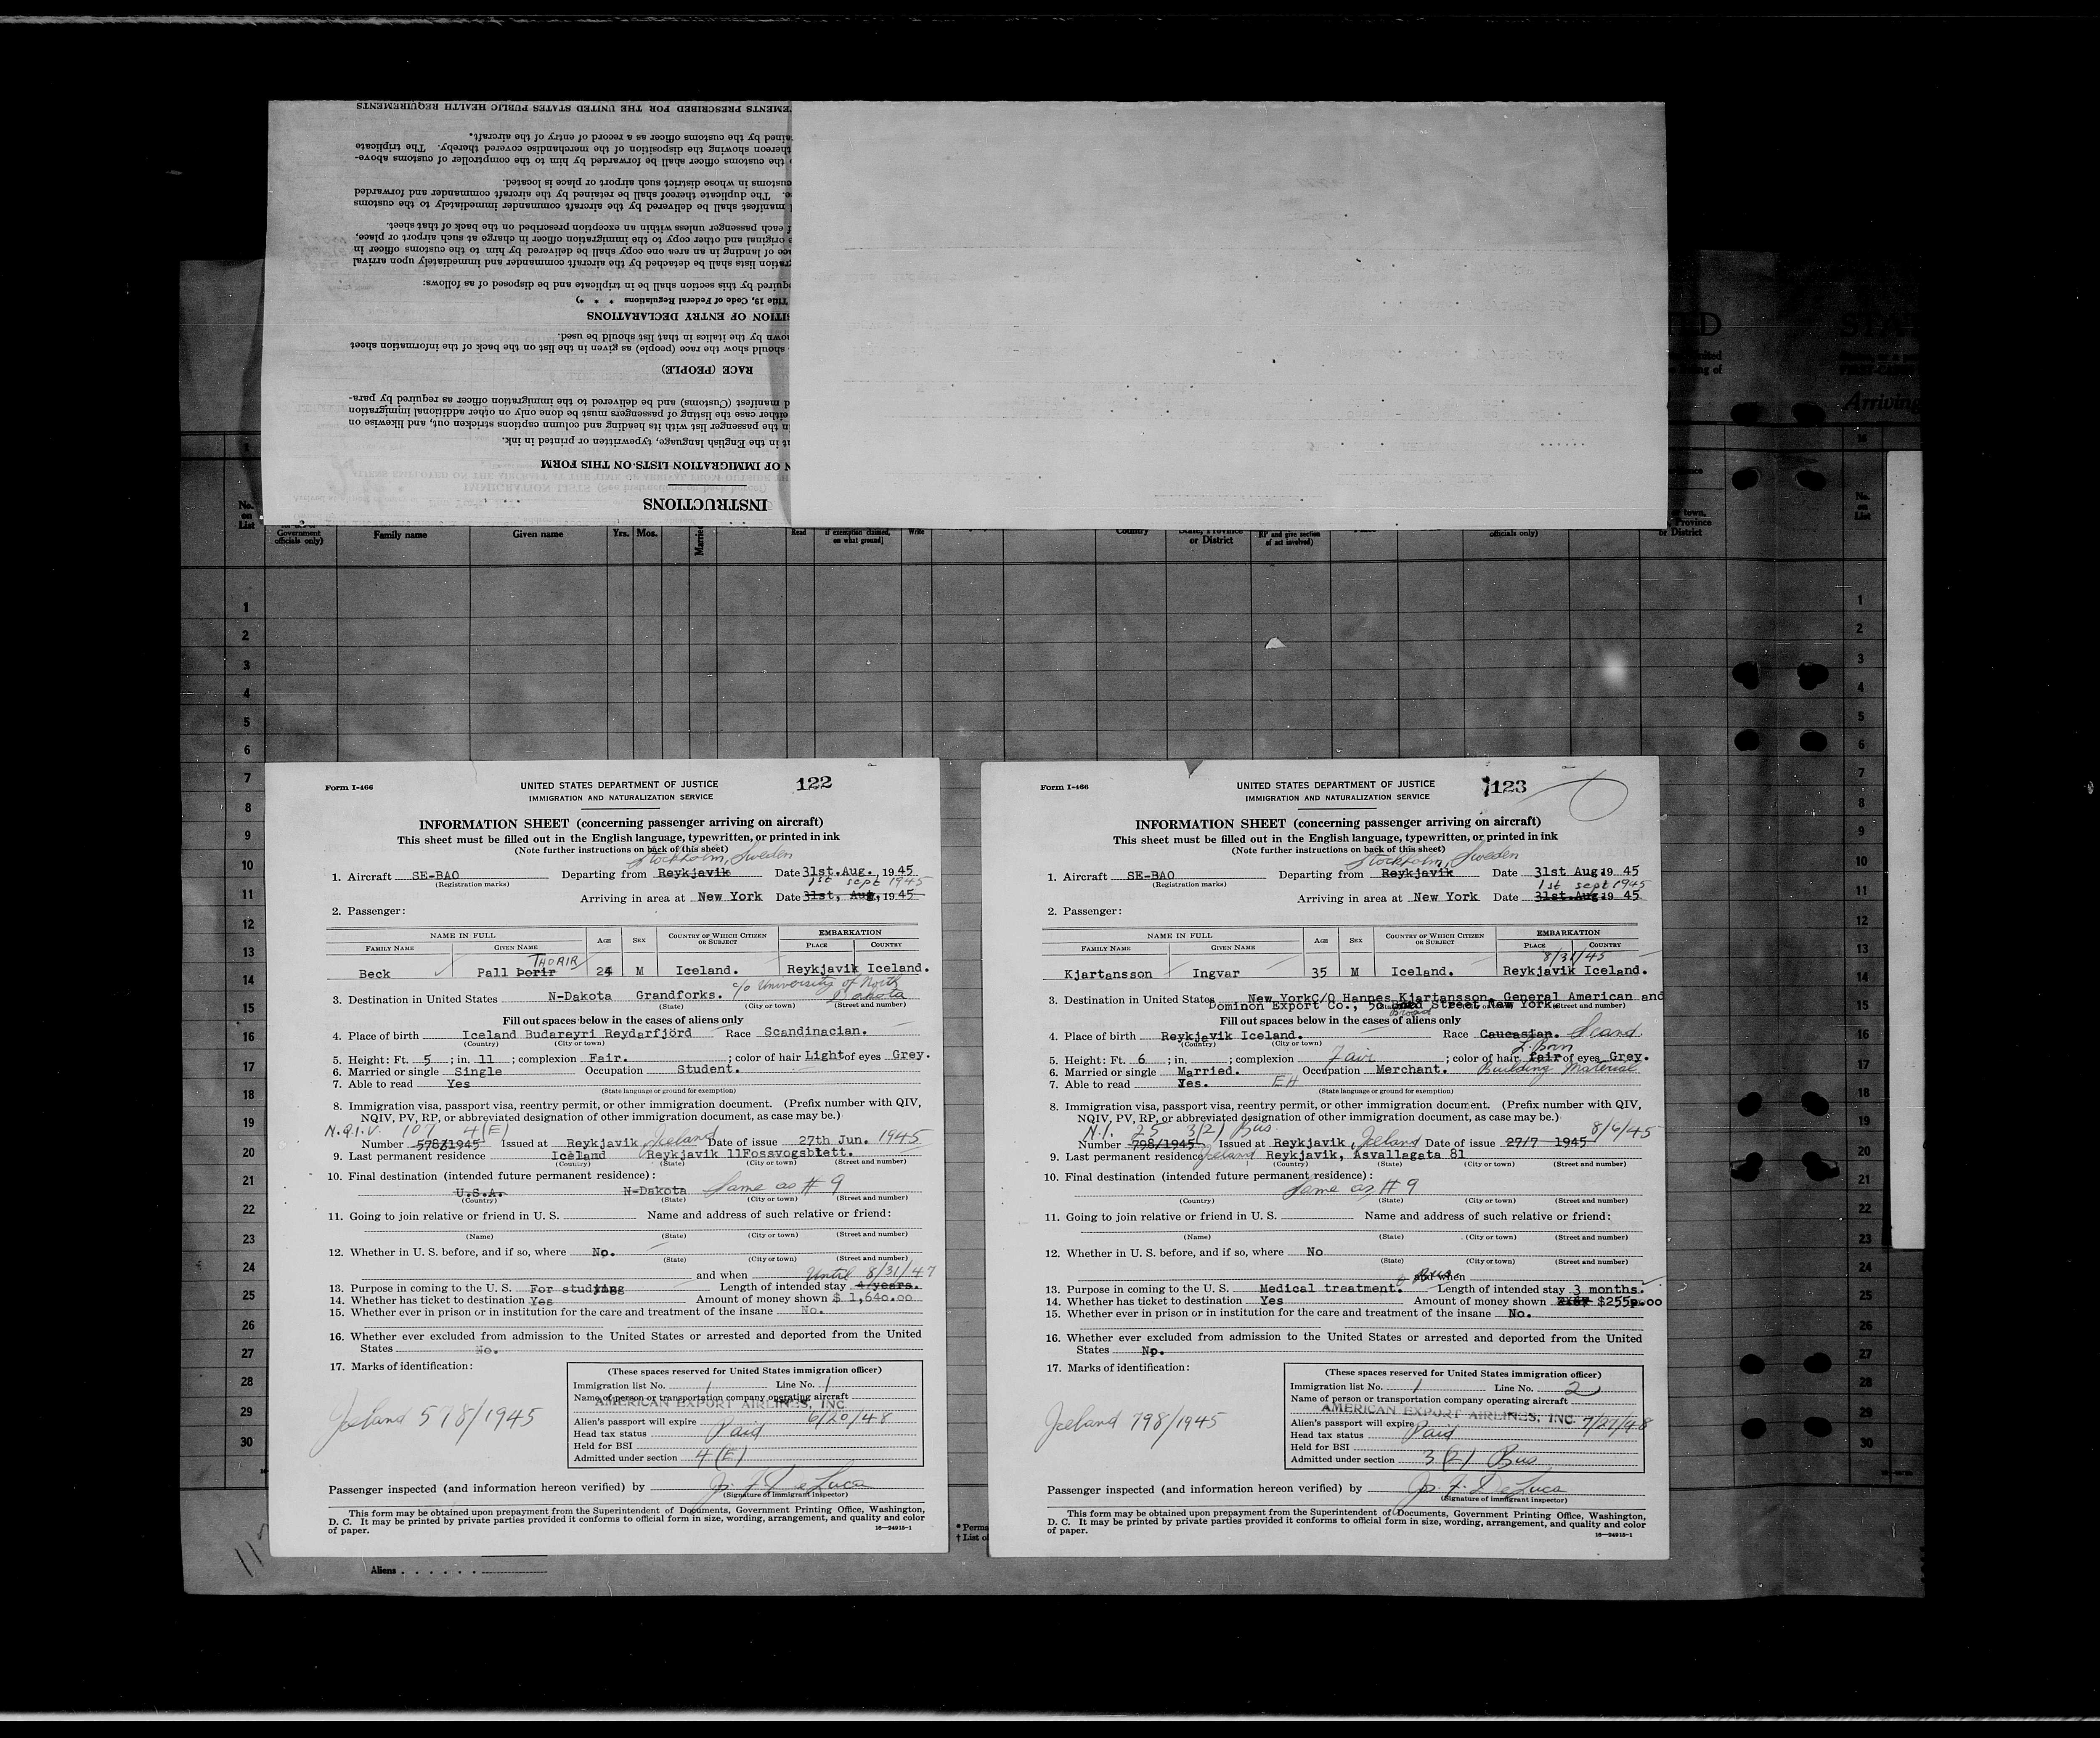 INSTRUCTIONS
N OF IMMIGRATION LISTS ON THIS FORM
t in the English language, typewritten or printed in ink.
n the passenger list with its heading and column captions stricken out, and likewise on
either case the listing of passengers must be done only on other additional immigration
d manifest (Customs) and be delivered to the immigration officer as required by para-
RACE (PEOPLE)
should show the race (people) as given in the list on the back of the information sheet
own by the italics in that list should be used.
SITION OF ENTRY DECLARATIONS
Title 19, Code of Federal Regulations * * *)
quired by this section shall be in triplicate and be disposed of as follows:
gration lists shall be detached by the aircraft commander and immediately upon arrival
ce of landing in an area one copy shall be delivered by him to the customs officer in
s original and other copy to the immigration officer in charge at such airport or place,
f each passenger unless within an exception prescribed on the back of that sheet.
l manifest shall be delivered by the aircraft commander immediately to the customs
e. The duplicate thereof shall be retained by the aircraft commander and forwarded
customs in whose district such airport or place is located.
o the customs officer shall be forwarded by him to the comptroller of customs above-
thereon showing the disposition of the merchandise covered thereby. The triplicate
ained by the customs officer as a record of entry of the aircraft.
EMENTS PRESCRIBED FOR THE UNITED STATES PUBLIC HEALTH REQUIREMENTS
No. on List
Government officials only)
Family name
Given name
Yrs. Mos.
Read
if exemption claimed, on what ground]
Write
Country
State, Province or District
RP and give section of act involved)
officials only)
or District
Arriving
No. on List
1
2
3
4
5
6
7
8
9
10
11
12
13
14
15
16
17
18
19
20
21
22
23
24
25
26
27
28
29
30
Form I-466
UNITED STATES DEPARTMENT OF JUSTICE
122
IMMIGRATION AND NATURALIZATION SERVICE
INFORMATION SHEET (concerning passenger arriving on aircraft)
This sheet must be filled out in the English language, typewritten, or printed in ink
(Note further instructions on back of this sheet)
Stockholm, Sweden
1. Aircraft SE-BAO Departing from Reykjavik Date 31st.Aug., 1945
(Registration marks)
1st sept 1945
Arriving in area at New York Date 31st, Aug, 1945
2. Passenger:
NAME IN FULL AGE SEX COUNTRY OF WHICH CITIZEN OR SUBJECT EMBARKATION
FAMILY NAME GIVEN NAME PLACE COUNTRY
THORIR
Beck Pall Þorir 24 M Iceland. Reykjavik Iceland.
c/o University of North Dakota
3. Destination in United States N-Dakota Grandforks.
(State) (City or town) (Street and number)
Fill out spaces below in the cases of aliens only
4. Place of birth Iceland Budareyri Reydarfjörd Race Scandinacian.
(Country) (City or town)
5. Height: Ft. 5 ; in. 11 ; complexion Fair. ; color of hair Light of eyes Grey.
6. Married or single Single Occupation Student.
7. Able to read Yes
(State language or ground for exemption)
8. Immigration visa, passport visa, reentry permit, or other immigration document. (Prefix number with QIV,
NQIV, PV, RP, or abbreviated designation of other immigration document, as case may be.)
N.Q.I.V. 107 4(E)
Number 578/1945 Issued at Reykjavik Iceland Date of issue 27th Jun. 1945
9. Last permanent residence Iceland Reykjavik 11Fossvogsblett.
(Country) (State) (City or town) (Street and number)
10. Final destination (intended future permanent residence):
U.S.A. N-Dakota Same as # 9
(Country) (State) (City or town) (Street and number)
11. Going to join relative or friend in U. S. Name and address of such relative or friend:
(Name) (State) (City or town) (Street and number)
12. Whether in U. S. before, and if so, where No.
(State) (City or town) (Street and number)
and when Until 8/31/47
13. Purpose in coming to the U. S. For studying Length of intended stay 4/years.
14. Whether has ticket to destination Yes Amount of money shown $ 1,640.00
15. Whether ever in prison or in institution for the care and treatment of the insane No.
16. Whether ever excluded from admission to the United States or arrested and deported from the United
States No.
17. Marks of identification:
Iceland 578/1945
(These spaces reserved for United States immigration officer)
Immigration list No. 1 Line No. 1
Name of person or transportation company operating aircraft
AMERICAN EXPORT AIRLINES, INC.
Alien's passport will expire 6/20/48
Head tax status Paid
Held for BSI
Admitted under section 4(E)
Passenger inspected (and information hereon verified) by J. F. DeLuca
(Signature of immigrant inspector)
This form may be obtained upon prepayment from the Superintendent of Documents, Government Printing Office, Washington,
D. C. It may be printed by private parties provided it conforms to official form in size, wording, arrangement, and quality and color
of paper.
16—24915-1
Aliens
Form I-466
UNITED STATES DEPARTMENT OF JUSTICE
123
IMMIGRATION AND NATURALIZATION SERVICE
INFORMATION SHEET (concerning passenger arriving on aircraft)
This sheet must be filled out in the English language, typewritten, or printed in ink
(Note further instructions on back of this sheet)
Stockholm, Sweden
1. Aircraft SE-BAO Departing from Reykjavik Date 31st Aug. 1945
(Registration marks)
1st sept 1945
Arriving in area at New York Date 31st.Aug. 1945
2. Passenger:
NAME IN FULL AGE SEX COUNTRY OF WHICH CITIZEN OR SUBJECT EMBARKATION
FAMILY NAME GIVEN NAME PLACE COUNTRY
8/31/45
Kjartansson Ingvar 35 M Iceland. Reykjavik Iceland.
3. Destination in United States New YorkC/O Hannes Kjartansson, General American and
Dominon Export Co., 50 Broad Street New York.
(Street and number)
Fill out spaces below in the cases of aliens only
4. Place of birth Reykjavik Iceland. Race Caucasian. Scand.
(Country) (City or town)
L. Brn
5. Height: Ft. 6 ; in. ; complexion Fair ; color of hair fair of eyes Grey.
6. Married or single Married. Occupation Merchant. Building Material
7. Able to read Yes. EH
(State language or ground for exemption)
8. Immigration visa, passport visa, reentry permit, or other immigration document. (Prefix number with QIV,
NQIV, PV, RP, or abbreviated designation of other immigration document, as case may be.)
N.I. 25 3(2) Bus. 8/6/45
Number 798/1945 Issued at Reykjavik, Iceland Date of issue 27/7 1945
9. Last permanent residence Iceland Reykjavik, Asvallagata 81
(Country) (State) (City or town) (Street and number)
10. Final destination (intended future permanent residence):
Same as # 9
(Country) (State) (City or town) (Street and number)
11. Going to join relative or friend in U. S. Name and address of such relative or friend:
(Name) (State) (City or town) (Street and number)
12. Whether in U. S. before, and if so, where No
(State) (City or town) (Street and number)
and when
13. Purpose in coming to the U. S. Medical treatment. & Bus. Length of intended stay 3 months.
14. Whether has ticket to destination Yes Amount of money shown $255.00
15. Whether ever in prison or in institution for the care and treatment of the insane No.
16. Whether ever excluded from admission to the United States or arrested and deported from the United
States No.
17. Marks of identification:
Iceland 798/1945
(These spaces reserved for United States immigration officer)
Immigration list No. 1 Line No. 2
Name of person or transportation company operating aircraft
AMERICAN EXPORT AIRLINES, INC.
Alien's passport will expire 7/27/48
Head tax status Paid
Held for BSI
Admitted under section 3(2) Bus
Passenger inspected (and information hereon verified) by J. F. DeLuca
(Signature of immigrant inspector)
This form may be obtained upon prepayment from the Superintendent of Documents, Government Printing Office, Washington,
D. C. It may be printed by private parties provided it conforms to official form in size, wording, arrangement, and quality and color
of paper.
16—24915-1